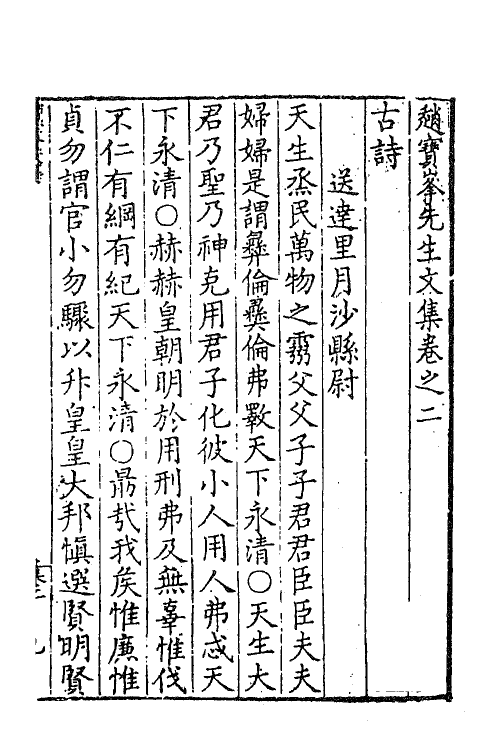 趙寳峯先生文集卷之二
古詩
送達里月沙縣尉
天生烝民萬物之靈父父子子君君臣臣夫夫
婦婦是謂彞倫彞倫弗斁天下永清○天生大
君乃聖乃神克用君子化彼小人用人弗忒天
下永清○赫赫皇朝明於用刑弗及無辜惟伐
不仁有綱有紀天下永清○勗㢤我矦惟廉惟
貞勿謂官小勿驟以升皇皇大邦愼選賢明賢